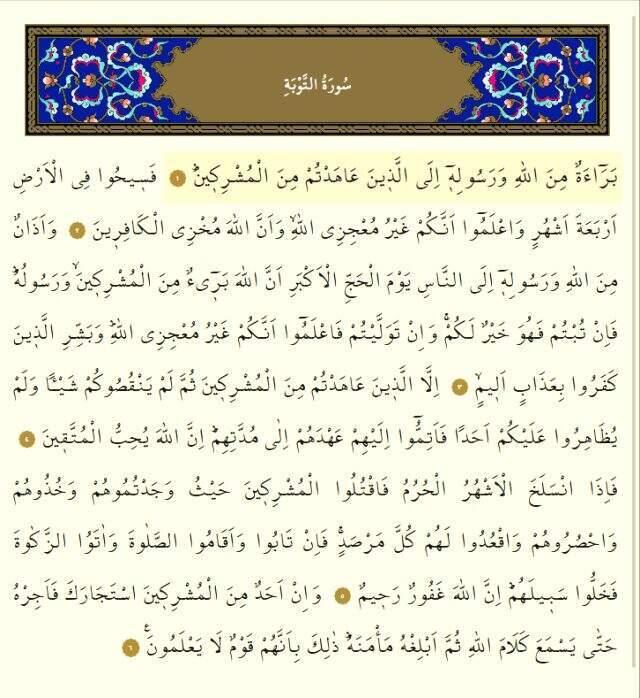 سُورَةُ التَّوْبَةِ
بَرَٓاءَةٌ مِنَ اللّٰهِ وَرَسُولِه۪ٓ اِلَى الَّذ۪ينَ عَاهَدْتُمْ مِنَ الْمُشْرِك۪ينَۜ ١ فَس۪يحُوا فِي الْاَرْضِ
اَرْبَعَةَ اَشْهُرٍ وَاعْلَمُٓوا اَنَّكُمْ غَيْرُ مُعْجِزِي اللّٰهِۙ وَاَنَّ اللّٰهَ مُخْزِي الْكَافِر۪ينَ ٢ وَاَذَانٌ
مِنَ اللّٰهِ وَرَسُولِه۪ٓ اِلَى النَّاسِ يَوْمَ الْحَجِّ الْاَكْبَرِ اَنَّ اللّٰهَ بَر۪ٓيءٌ مِنَ الْمُشْرِك۪ينَۙ وَرَسُولُهُۜ
فَاِنْ تُبْتُمْ فَهُوَ خَيْرٌ لَكُمْۚ وَاِنْ تَوَلَّيْتُمْ فَاعْلَمُٓوا اَنَّكُمْ غَيْرُ مُعْجِزِي اللّٰهِۜ وَبَشِّرِ الَّذ۪ينَ
كَفَرُوا بِعَذَابٍ اَل۪يمٍۙ ٣ اِلَّا الَّذ۪ينَ عَاهَدْتُمْ مِنَ الْمُشْرِك۪ينَ ثُمَّ لَمْ يَنْقُصُوكُمْ شَيْـًٔا وَلَمْ
يُظَاهِرُوا عَلَيْكُمْ اَحَدًا فَاَتِمُّٓوا اِلَيْهِمْ عَهْدَهُمْ اِلٰى مُدَّتِهِمْۜ اِنَّ اللّٰهَ يُحِبُّ الْمُتَّق۪ينَ ٤
فَاِذَا انْسَلَخَ الْاَشْهُرُ الْحُرُمُ فَاقْتُلُوا الْمُشْرِك۪ينَ حَيْثُ وَجَدْتُمُوهُمْ وَخُذُوهُمْ
وَاحْصُرُوهُمْ وَاقْعُدُوا لَهُمْ كُلَّ مَرْصَدٍۚ فَاِنْ تَابُوا وَاَقَامُوا الصَّلٰوةَ وَاٰتَوُا الزَّكٰوةَ
فَخَلُّوا سَب۪يلَهُمْۜ اِنَّ اللّٰهَ غَفُورٌ رَح۪يمٌ ٥ وَاِنْ اَحَدٌ مِنَ الْمُشْرِك۪ينَ اسْتَجَارَكَ فَاَجِرْهُ
حَتّٰى يَسْمَعَ كَلَامَ اللّٰهِ ثُمَّ اَبْلِغْهُ مَأْمَنَهُۜ ذٰلِكَ بِاَنَّهُمْ قَوْمٌ لَا يَعْلَمُونَ۟ ٦